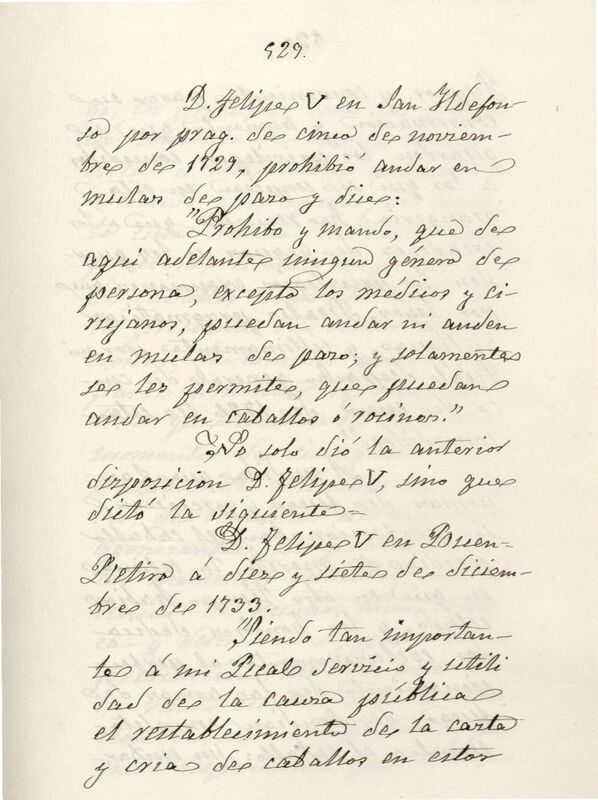 929.
D. Felipe V en San Ildefon-
so por prag. de cinco de noviem-
bre de 1729, prohibió andar en
mulas de paso y dice:
"Prohibo y mando, que de
aqui adelante ningun género de
persona, excepto los médicos y ci-
rujanos, puedan andar ni anden
en mulas de paso; y solamente
se les permite, que puedan
andar en caballos ó rocines."
No solo dió la anterior
disposicion D. Felipe V, sino que
dictó la siguiente=
D. Felipe V en Buen-
Retiro á diez y siete de diciem-
bre de 1733.
"Siendo tan importan-
te á mi Real servicio y utili
dad de la causa pública
el restablecimiento de la casta
y cria de caballos en estos